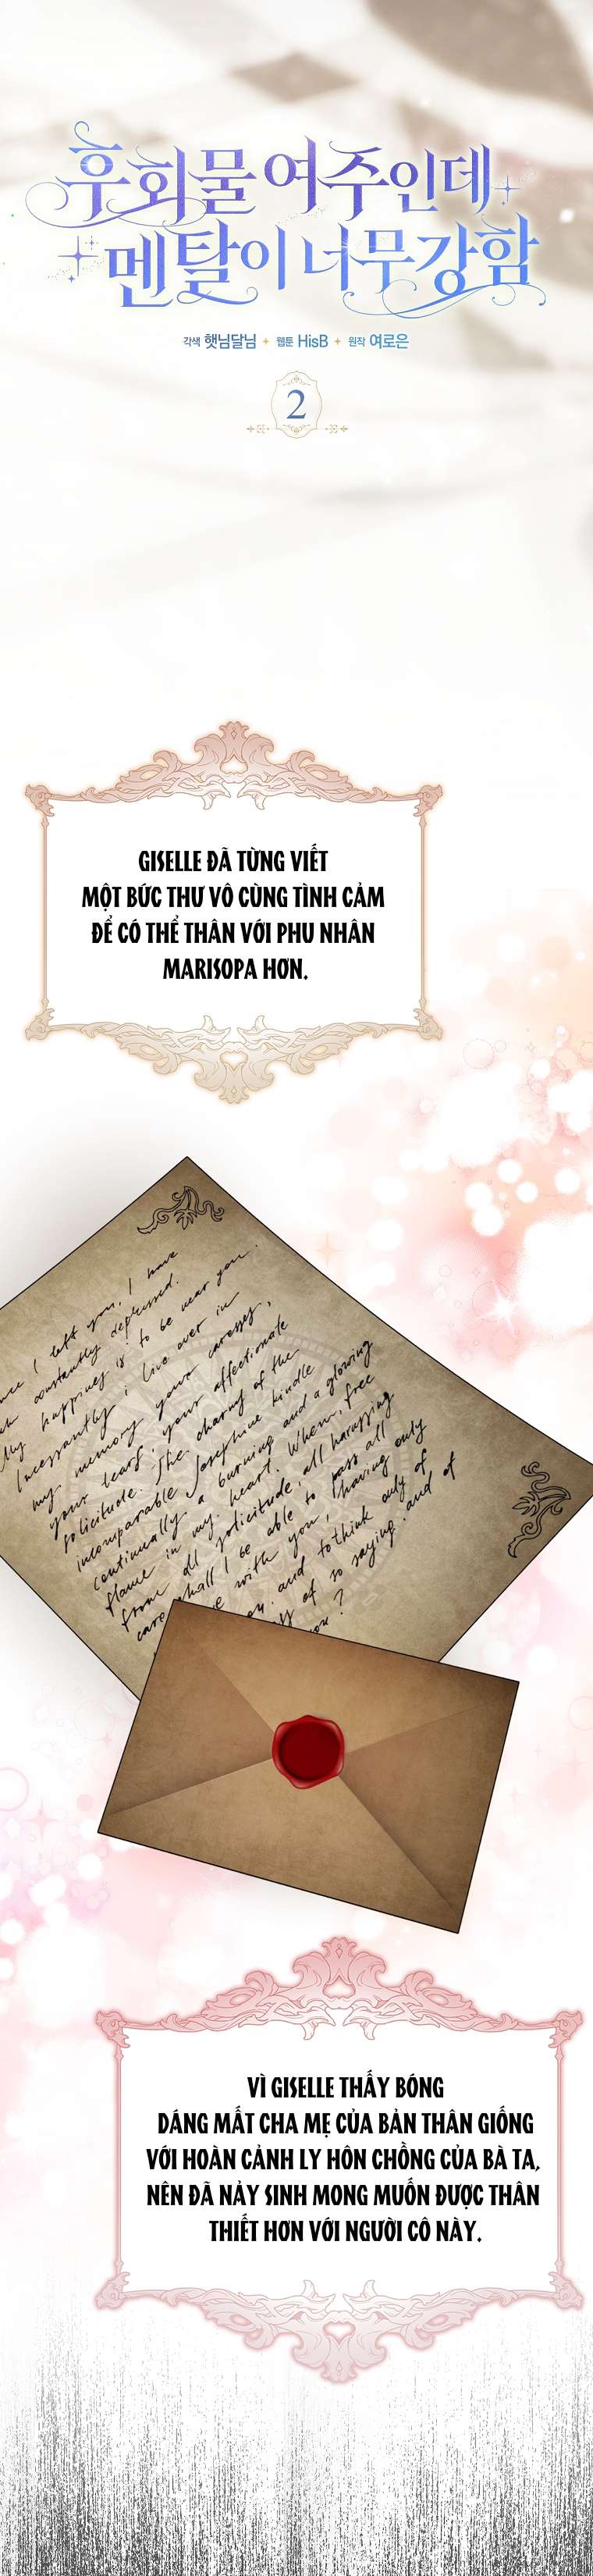 후회물 여주인데
멘탈이 너무 강함
각색 햇님달님 + 웹툰 HisB + 원작 여로은
2
GISELLE ĐÃ TỪNG VIẾT
MỘT BỨC THƯ VÔ CÙNG TÌNH CẢM
ĐỂ CÓ THỂ THÂN VỚI PHU NHÂN
MARISOPA HƠN.
I left you, I have
constantly depressed.
My happiness is to be near you.
Incessantly i live over in
my memory your caresses,
your tears, your affectionate
solicitude. The charms of the
incomparable Josephine kindle
continually a burning and a glowing
flame in my heart. When, free
from all solicitude, all harassing
care, shall I be able to pass all
with you, having only
and to think only of
of so saying, and of
you?
VÌ GISELLE THẤY BÓNG
DÁNG MẤT CHA MẸ CỦA BẢN THÂN GIỐNG
VỚI HOÀN CẢNH LY HÔN CHỒNG CỦA BÀ TA,
NÊN ĐÃ NẢY SINH MONG MUỐN ĐƯỢC THÂN
THIẾT HƠN VỚI NGƯỜI CÔ NÀY.